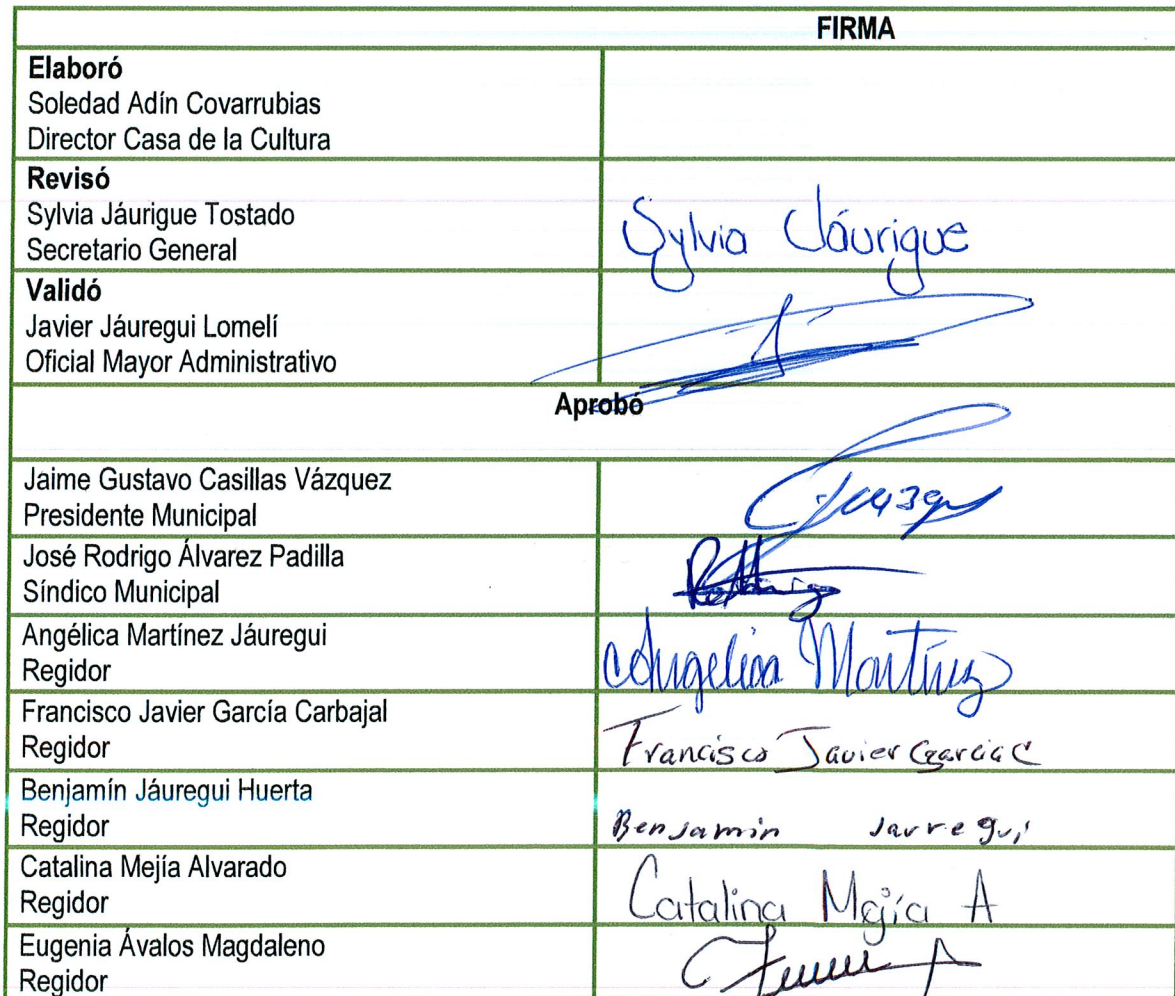 FIRMA
Elaboró
Soledad Adín Covarrubias
Director Casa de la Cultura
Revisó
Sylvia Jáurigue Tostado
Secretario General
Sylvia Jáurigue
Validó
Javier Jáuregui Lomelí
Oficial Mayor Administrativo
Aprobó
Jaime Gustavo Casillas Vázquez
Presidente Municipal
José Rodrigo Álvarez Padilla
Síndico Municipal
Angélica Martínez Jáuregui
Regidor
Angelica Martínez
Francisco Javier García Carbajal
Regidor
Francisco Javier Garcia C
Benjamín Jáuregui Huerta
Regidor
Benjamin Jaurregui
Catalina Mejía Alvarado
Regidor
Catalina Mejía A
Eugenia Ávalos Magdaleno
Regidor